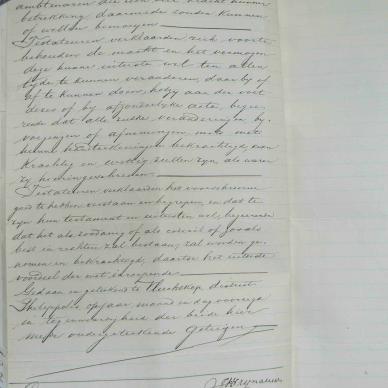 ambtenaren die een
betrekking daarmede zouden kunnen
of willen bemoeyen
Testateuren verklaarden zich voorts
behouden de macht en het vermogen
deze hunne uiterste wil ten allen
tyde te kunnen veranderen, daarby of
af te kunnen doen, hetzy aan den voet
dezer of by afzonderlyke acte, begee-
rende dat alle zulke veranderingen by-
voegingen of afnemingen mits met
hunne handteekeningen bekrachtigd, van
kracht en zullen zyn, als waren
zy hierin geschreven
Testateuren verklaarden het voorschreven
goed te hebben verstaan en begrepen, en dat te
zyn hun testament en uiterste wil, begeerende
dat het als zoodanig of als codicil of zooals
best in rechten zal bestaan, zal worden ge-
nomen en bekrachtigd, daartoe het uiterste
voordeel der wet inroepende
Gedaan en geteekend te district
Philippolis, op jaar, maand en dag voorzegd
in tegenwoordigheid der beide hier
mede ondergeteekende getuigen